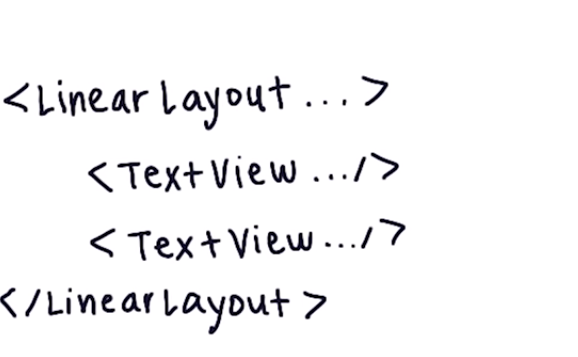 <Linear Layout ...>
<TextView .../>
<TextView .../>
</LinearLayout>